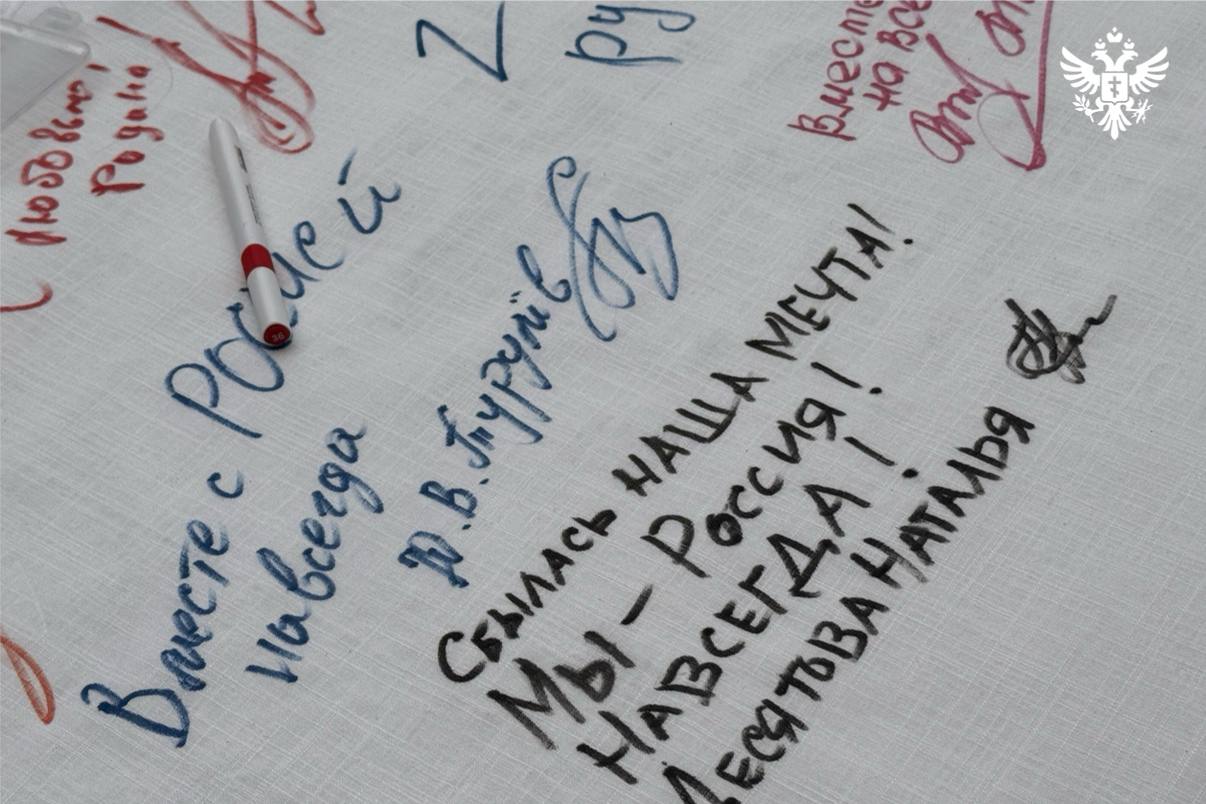 Любовью!
Родина
Z
ру
Вместе
на все
Вместе с Россией
навсегда
Сбылась наша мечта!
Мы – Россия!
Навсегда!
Десятова Наталья
36